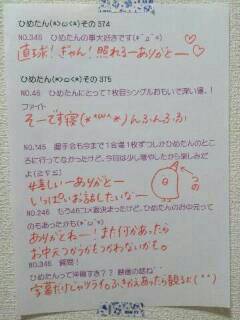 ひめたん(*>ω<*)その 374
NO.345 ひめたんの事大好きです(*´ω`*)
直球!ぎゃん!照れるーありがとー♡
ひめたん(*>ω<*)その 375
NO.45 ひめたんにとって1枚目シングルおもいで深い週、!
ファイト
そーです寝(*^ω^*)んふんふふ
NO.145 握手会も今まで1会場1枚ずつしかひめたんのとこ
ろに行ってなかったけど、今回は少し増やしたから楽しみだ
よ(≧▽≦)
嬉しいーありがとー
いっぱいお話したいな
つの
NO.246 もう46コメ返決まったけど、ひめたんのお中元って
のもあったかも(*´ω`*)
ありがとねー!また何かあったら
お中元つかうかもつかわないかも。
NO.346 質問!
ひめたんって沖縄すき??映画の話ね